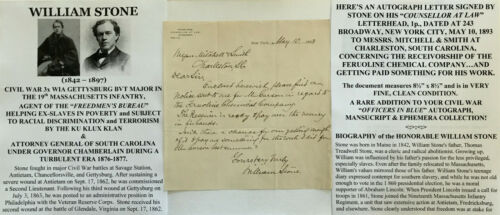 WILLIAM STONE
(1842 – 1897)
CIVIL WAR 3x WIA GETTYSBURG BVT MAJOR IN
THE 19th MASSACHUSETTS INFANTRY,
AGENT OF THE "FREEDMEN'S BUREAU"
HELPING EX-SLAVES IN POVERTY and SUBJECT
TO RACIAL DISCRIMINATION and TERRORISM
BY THE KU KLUX KLAN
&
ATTORNEY GENERAL OF SOUTH CAROLINA
UNDER GOVERNOR CHAMBERLAIN DURING A
TURBULENT ERA 1876-1877.
Stone fought in major Civil War battles at Savage Station,
Antietam, Chancellorsville, and Gettysburg. After sustaining a
severe wound at Antietam on Sept. 17, 1862, he was commissioned
a Second Lieutenant. Following his third wound at Gettysburg on
July 3, 1863, he was posted to an administrative position in
Philadelphia with the Veteran Reserve Corps. Stone received his
second wound at the battle of Glendale, Virginia on Sept. 17, 1862.
New York, May 10, 1893
Messrs. Mitchell & Smith
Charleston, SC
Dear Sirs
Gentlemen
Courteously Yours,
William Stone
HERE'S AN AUTOGRAPH LETTER SIGNED BY
STONE ON HIS "COUNSELLOR AT LAW"
LETTERHEAD, 1p., DATED AT 243
BROADWAY, NEW YORK CITY, MAY 10, 1893
TO MESSRS. MITCHELL & SMITH AT
CHARLESTON, SOUTH CAROLINA,
CONCERNING THE RECEIVORSHIP OF THE
FEROLINE CHEMICAL COMPANY…AND
GETTING PAID SOMETHING FOR HIS WORK.
The document measures 8½" x 8½" and is in VERY
FINE, CLEAN CONDITION.
A RARE ADDITION TO YOUR CIVIL WAR
"OFFICERS IN BLUE" AUTOGRAPH,
MANUSCRIPT & EPHEMERA COLLECTION!
BIOGRAPHY OF THE HONORABLE WILLIAM STONE
Stone was born in Maine in 1842, William Stone's father, Thomas
Treadwell Stone, was a cleric and radical abolitionist. Growing up,
William was influenced by his father's passion for the less privileged,
especially slaves. Even after the family relocated to Massachusetts,
William's values mirrored those of his father. William Stone's teenage
diary expressed contempt for southern slavery, and while he was not old
enough to vote in the 1860 presidential election, he was a moral
supporter of Abraham Lincoln. When President Lincoln issued a call for
troops in 1861, Stone joined the 19th Massachusetts Infantry
Regiment, a unit that saw extensive action at Antietam, Fredericksburg,
and elsewhere. Stone clearly understood that freedom was at stake for